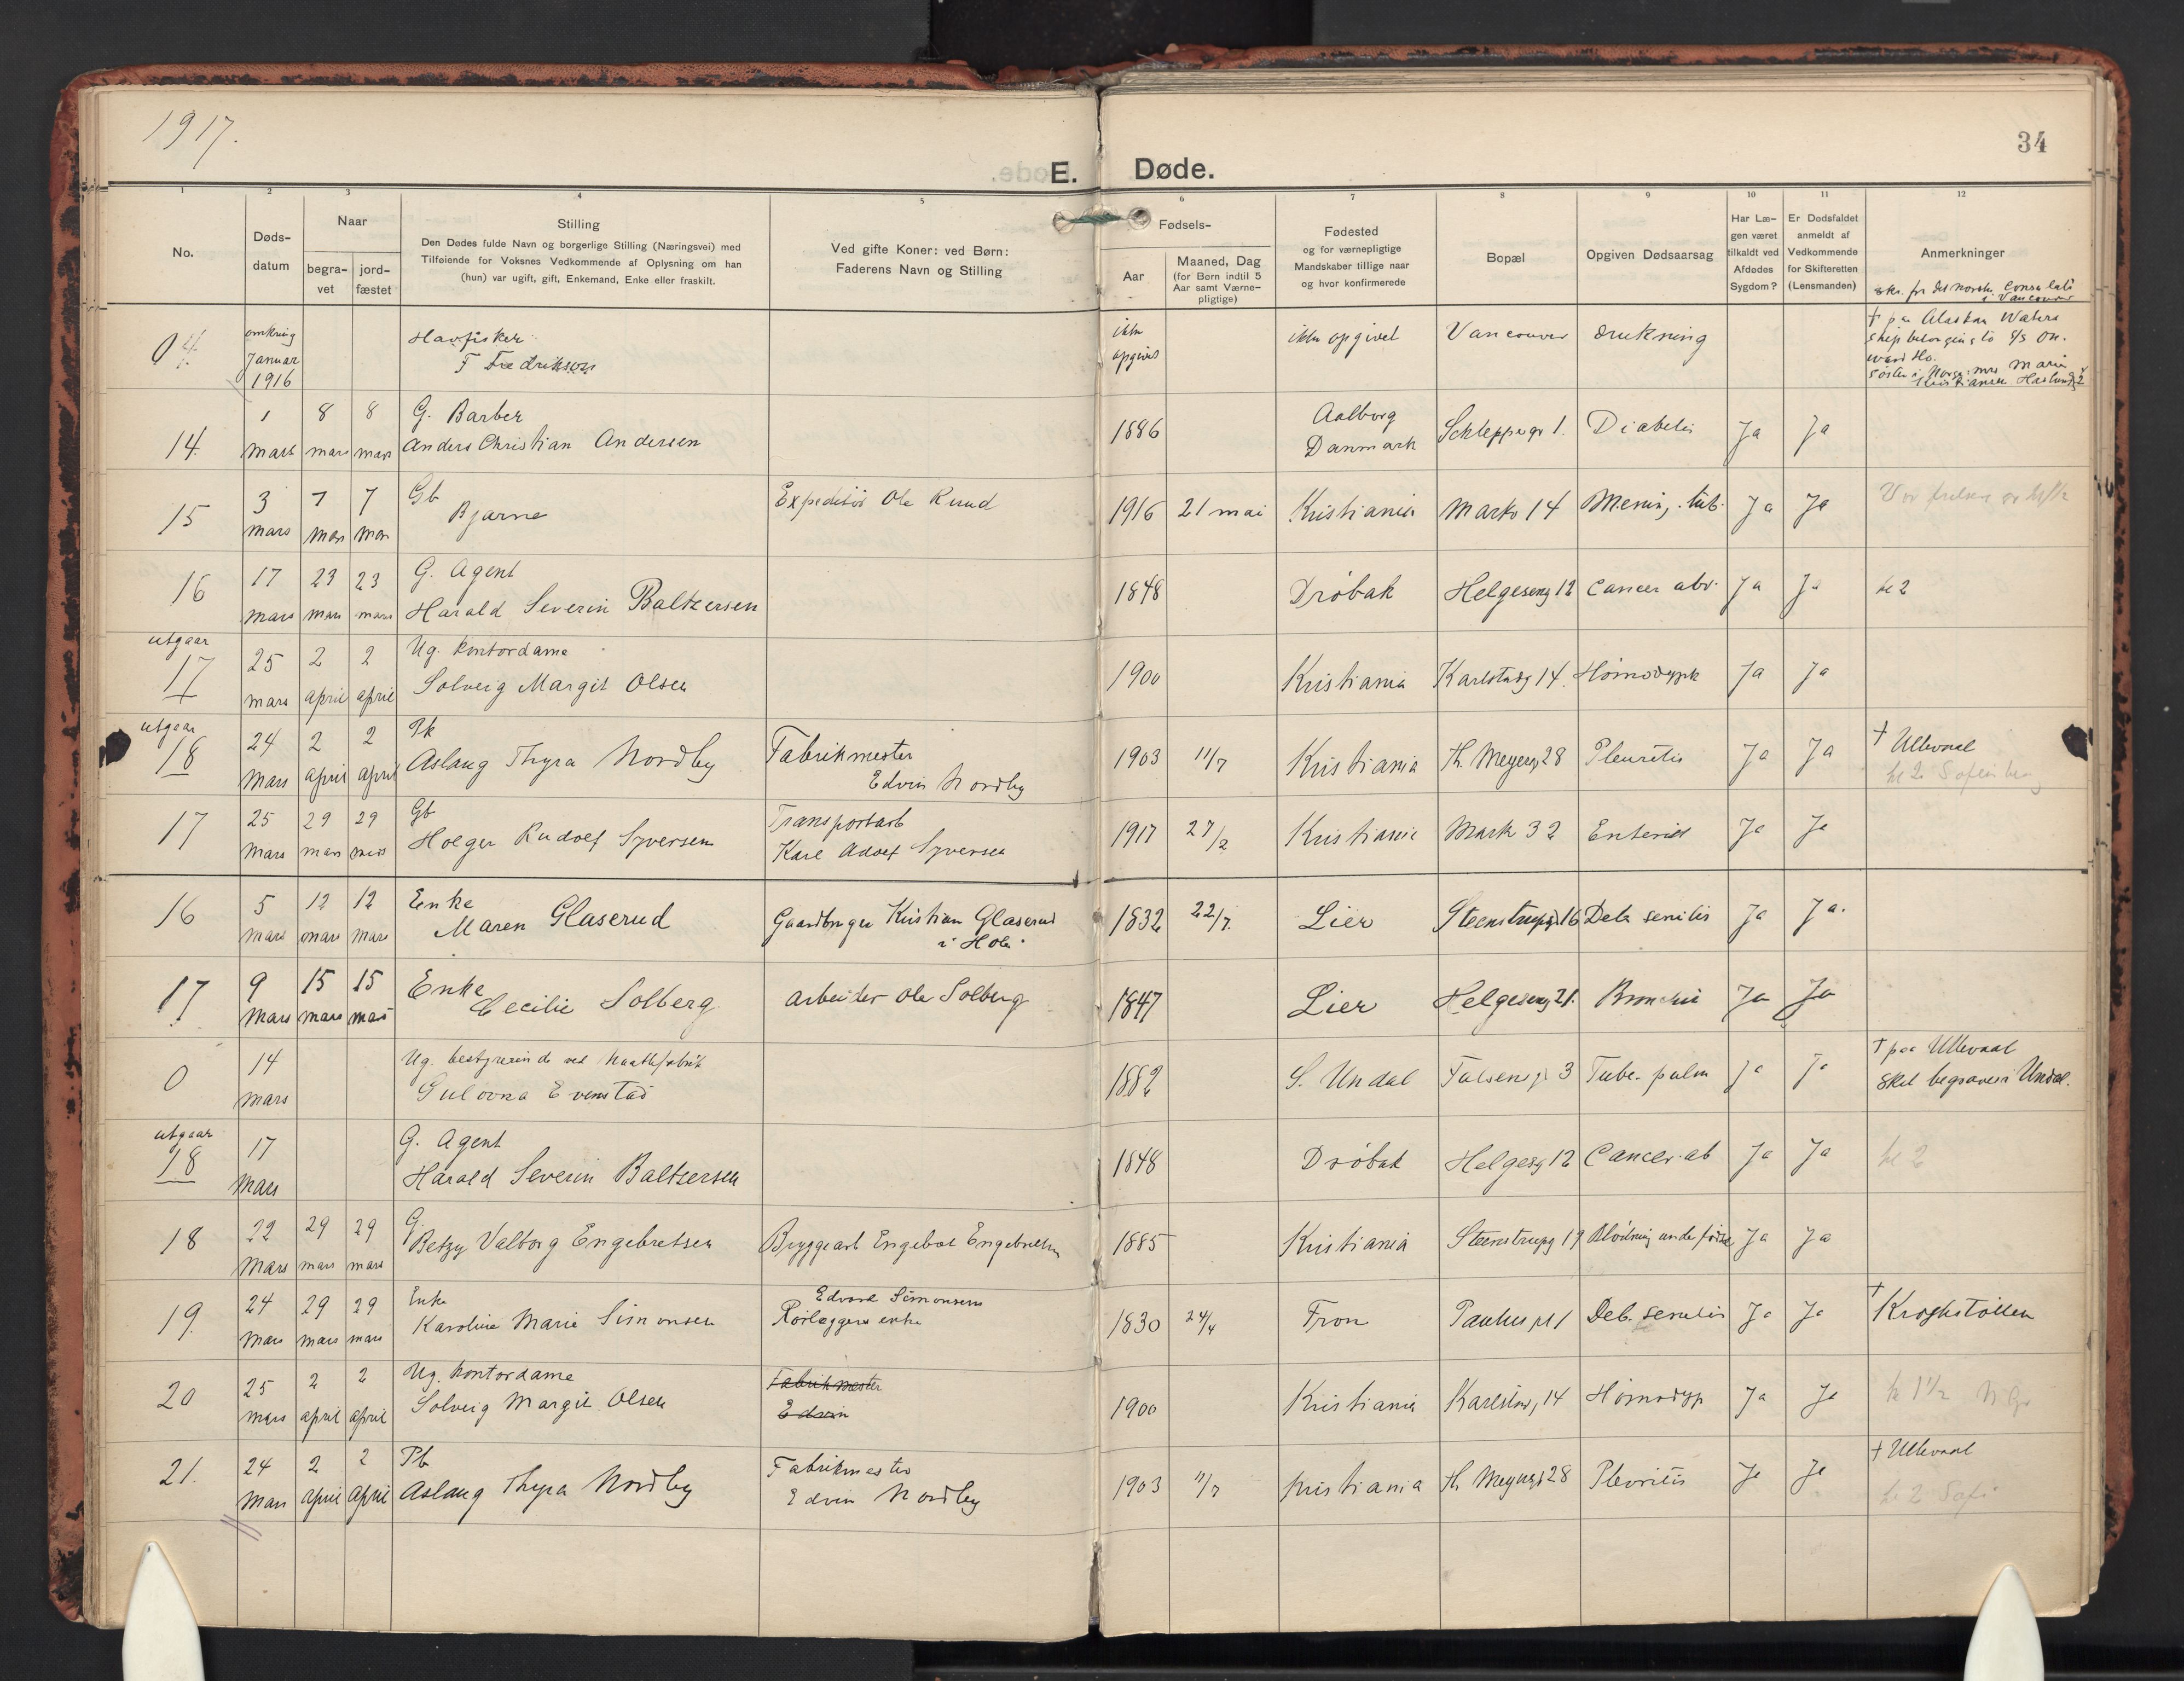 1917.
34
E. Døde.
1 2 3 4 5 6 7 8 9 10 11 12
No.
Døds-
datum
Naar
begra-
vet
jord-
fæstet
Stilling
Den Dødes fulde Navn og borgerlige Stilling (Næringsvei) med
Tilføiende for Voksnes Vedkommende af Oplysning om han
(hun) var ugift, gift, Enkemand, Enke eller fraskilt.
Ved gifte Koner: ved Børn:
Faderens Navn og Stilling
Fødsels-
Aar
Maaned, Dag
(for Børn indtil 5
Aar samt Værne-
pligtige)
Fødested
og for værnepligtige
Mandskaber tillige naar
og hvor konfirmerede
Bopæl
Opgiven Dødsaarsag
Har Læ-
gen været
tilkaldt ved
Afdødes
Sygdom?
Er Dødsfaldet
anmeldt af
Vedkommende
for Skifteretten
(Lensmanden)
Anmerkninger
skr. fra det norske Consulat
i Vancouver
04. omkring Januar 1916
Havfisker
F Fredriksen
ikke opgivet
ikke opgivet Vancouver drukning
† paa Alaskan Waters
ship belonging to S/S On-
ward Ho.
søster i Norge: mrs Marie
Kristiansen
14. 1 mars 8 mars 8 mars
G. Barber
Anders Christian Andersen
1886 Aalborg Danmark Schleppegr 1. Diabetes Ja Ja
15 3 mars 7 mars 7 mars
Gb
Bjarne
Expeditør Ole Ruud
1916 21 mai Kristiania Markv 14 Mening. tub. Ja Ja
16 17 mars 23 mars 23 mars
G. Agent
Harald Severin Baltzersen
1848 Drøbak Helgeseng 12 Cancer abd. Ja Ja kl 2
utgaar
17 25 mars 2 april 2 april
Ug. Kontordame
Solveig Margit Olsen
1900 Kristiania Karlstadg 14. Hæmodypk Ja Ja
utgaar
18 24 mars 2 april 2 april
Pk
Aslaug Thyra Nordby
Fabrikmester
Edvin Nordby
1903 11/7 Kristiania Th. Meyersg 28 Pleuritis Ja Ja † Ullevaal
kl 2 Sofienberg
17 25 mars 29 mars 29 mars
Gb
Holger Rudolf Syversen
Transportarb
Karl Adolf Syversen
1917 27/2 Kristiania Mark 32 Enterid Ja Ja
16 5 mars 12 mars 12 mars
Enke
Maren Glaserud
Gaardbruger Kristian Glaserud
i Hole
1832 22/7. Lier Steenstrupsg 16 Deb. senilis Ja Ja.
17 9 mars 15 mars 15 mars
Enke
Cecilie Solberg
Arbeider Ole Solberg
1847 Lier Helgeseng 21. Bronchit Ja Ja
0 14 mars
Ug. bestyrerinde ved
Gulovna Evenstad
1882 S. Undal Falsensg 3 Tube. pulm Ja Ja
† paa Ullevaal
skal begraves i Undal.
utgaar
18 17 mars
G. Agent
Harald Severin Baltzersen
1848 Drøbak Helgesg 12 Cancer. ab Ja Ja kl 2
18 22 mars 29 mars 29 mars
G.
Betzy Valborg Engebretsen
Bryggearb Engebret Engebretsen
1885 Kristiania Steenstrupg 19 Blødning under fødsel Ja Ja
19. 24 mars 29 mars 29 mars
Enke
Karoline Marie Simonsen
Edvard Simonsen
Rørlæggers enke
1830 24/4 Fron Paulus pl 1 Deb. senilis Ja Ja † Krogstøtten
20 25 mars 2 april 2 april
Ug. kontordame
Solveig Margit Olsen
Fabrikmester
Edvin
1900 Kristiania Karlstadg, 14 Hæmodyp Ja Ja kl 1½
21. 24 mars 2 april 2 april
Pk
Aslaug Thyra Nordby
Fabrikmester
Edvin Nordby
1903 11/7 Kristiania Th. Meyersg 28 Plevritis Ja Ja † Ullevaal
kl 2 Sofi